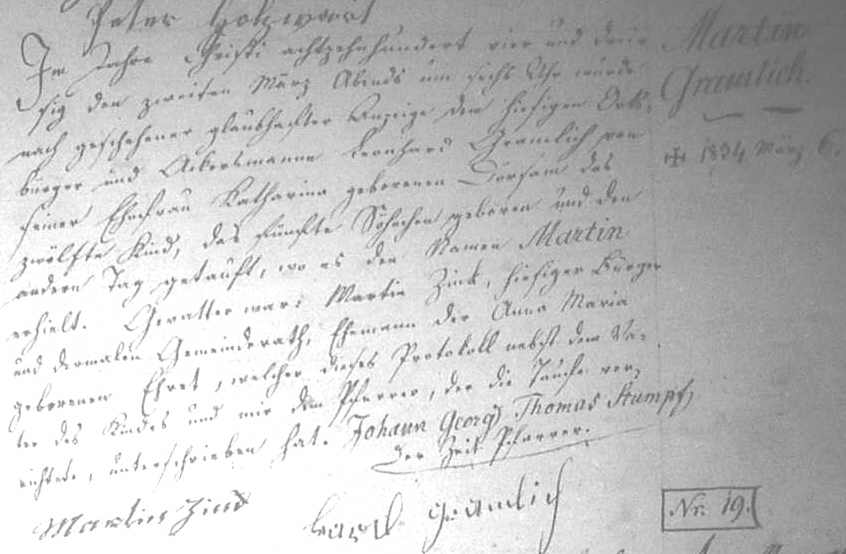 Peter Holzwart
Im Jahre Christi achtzehnhundert vier und dreis
sig den zweiten März Abends um sechs Uhr wurde
nach geschehener glaubhafter Anzeige dem hiesigen Orts-
bürger und Ackersmanne Leonhard Gramlich von
seiner Ehefrau Katharina geborenen Dörsam das
zwölfte Kind, das fünfte Söhnchen geboren und den
andern Tag getauft, wo es den Namen Martin
erhielt. Gevatter war: Martin Zink, hiesiger Bürger
und dermalen Gemeinderath, Ehemann der Anna Maria
geborenen Ehret, welcher dieses Protokoll nebst dem Va-
ter des Kindes und mir dem Pfarrer, der die Taufe ver-
richtete, unterschrieben hat. Johann Georg Thomas Stumpf,
der Zeit Pfarrer.
Martin Zink
Gramlich
Martin
Gramlich.
✠ 1834 März 6.
Nr. 19.